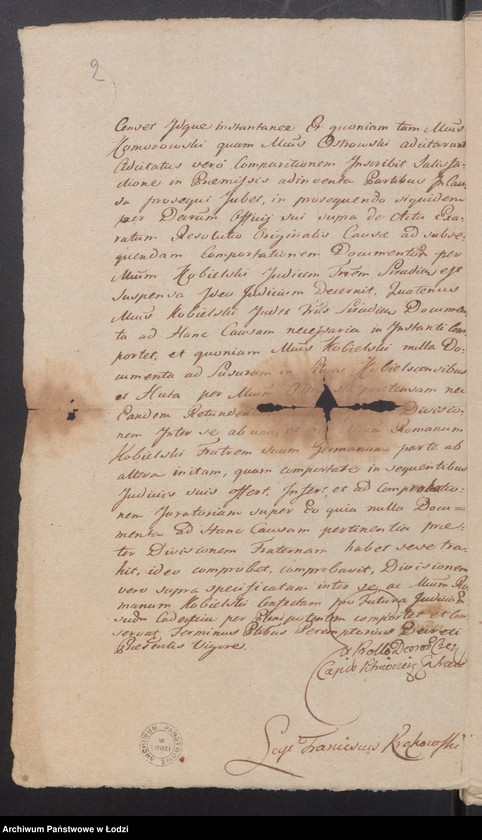 2
Censet Idque instantanee Et quoniam tam Mūus
Komorowski quam Mūus Ostrowski adcitatus
Adcitatus vero Comparitionem Inscribit Satisfa-
ctione in Praemissis adinventa Partibus In Cau-
sa prosequi Jubet, in prosequendo siquidem
per Decrum Officij sui supra de Actu
ratum Resolutio Originalis Causae ad subse-
quendam Comportationem Documentor per
Mūum Kobielski Judicem Siradiens est
suspensa Ideo Judicium Decernit, Quatenus
Mūus Kobielski Judex Siradien Documen
ta ad Hanc Causam necessaria in Instanti Com
portet, et quoniam Mūus Kobielski nulla Do-
cumenta ad in Bonis Kobielsconibus
et Huta per Mūum nec
Eandem Divisio-
nem Inter se ab una, et Romanum
Kobielski Fratrem suum Germanum parte ab
altera initam, quam comportate in sequentibus
Judicijs suis offert. Infert et ad comprobatio-
nem Juratoriam super Eo quia nulla Docu=
menta ad Hanc Causam pertinentia prae-
ter Divisionem Fraternam habet sese tra-
hit, ideo comprobet, comprobavit, Divisionem
vero supra specificatam inter se ac Mūum Ro
manum Kobielski Confectam pro Futura Judicior
sudm Cadentia per Plenipotentem comportet et Con
servat, Terminus Ptibus Peremptorius Decreti
Praesentis Vigore.
Ex Prollo Decror
Capis
Legi Franciscus Krakowski
ARCHIWUM PAŃSTWOWE W ŁODZI
Archiwum Państwowe w Łodzi